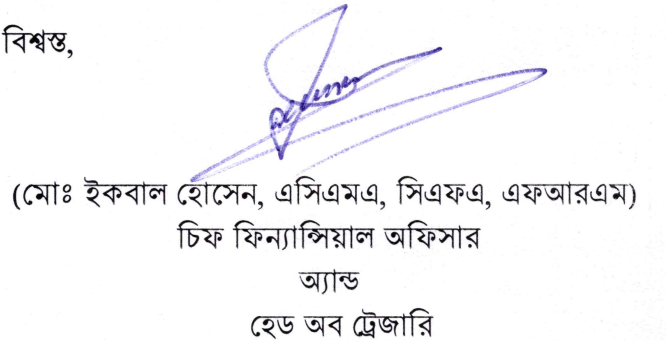 বিশ্বস্ত,
(মোঃ ইকবাল হোসেন, এসিএমএ, সিএফএ, এফআরএম)
চিফ ফিন্যান্সিয়াল অফিসার
অ্যান্ড
হেড অব ট্রেজারি